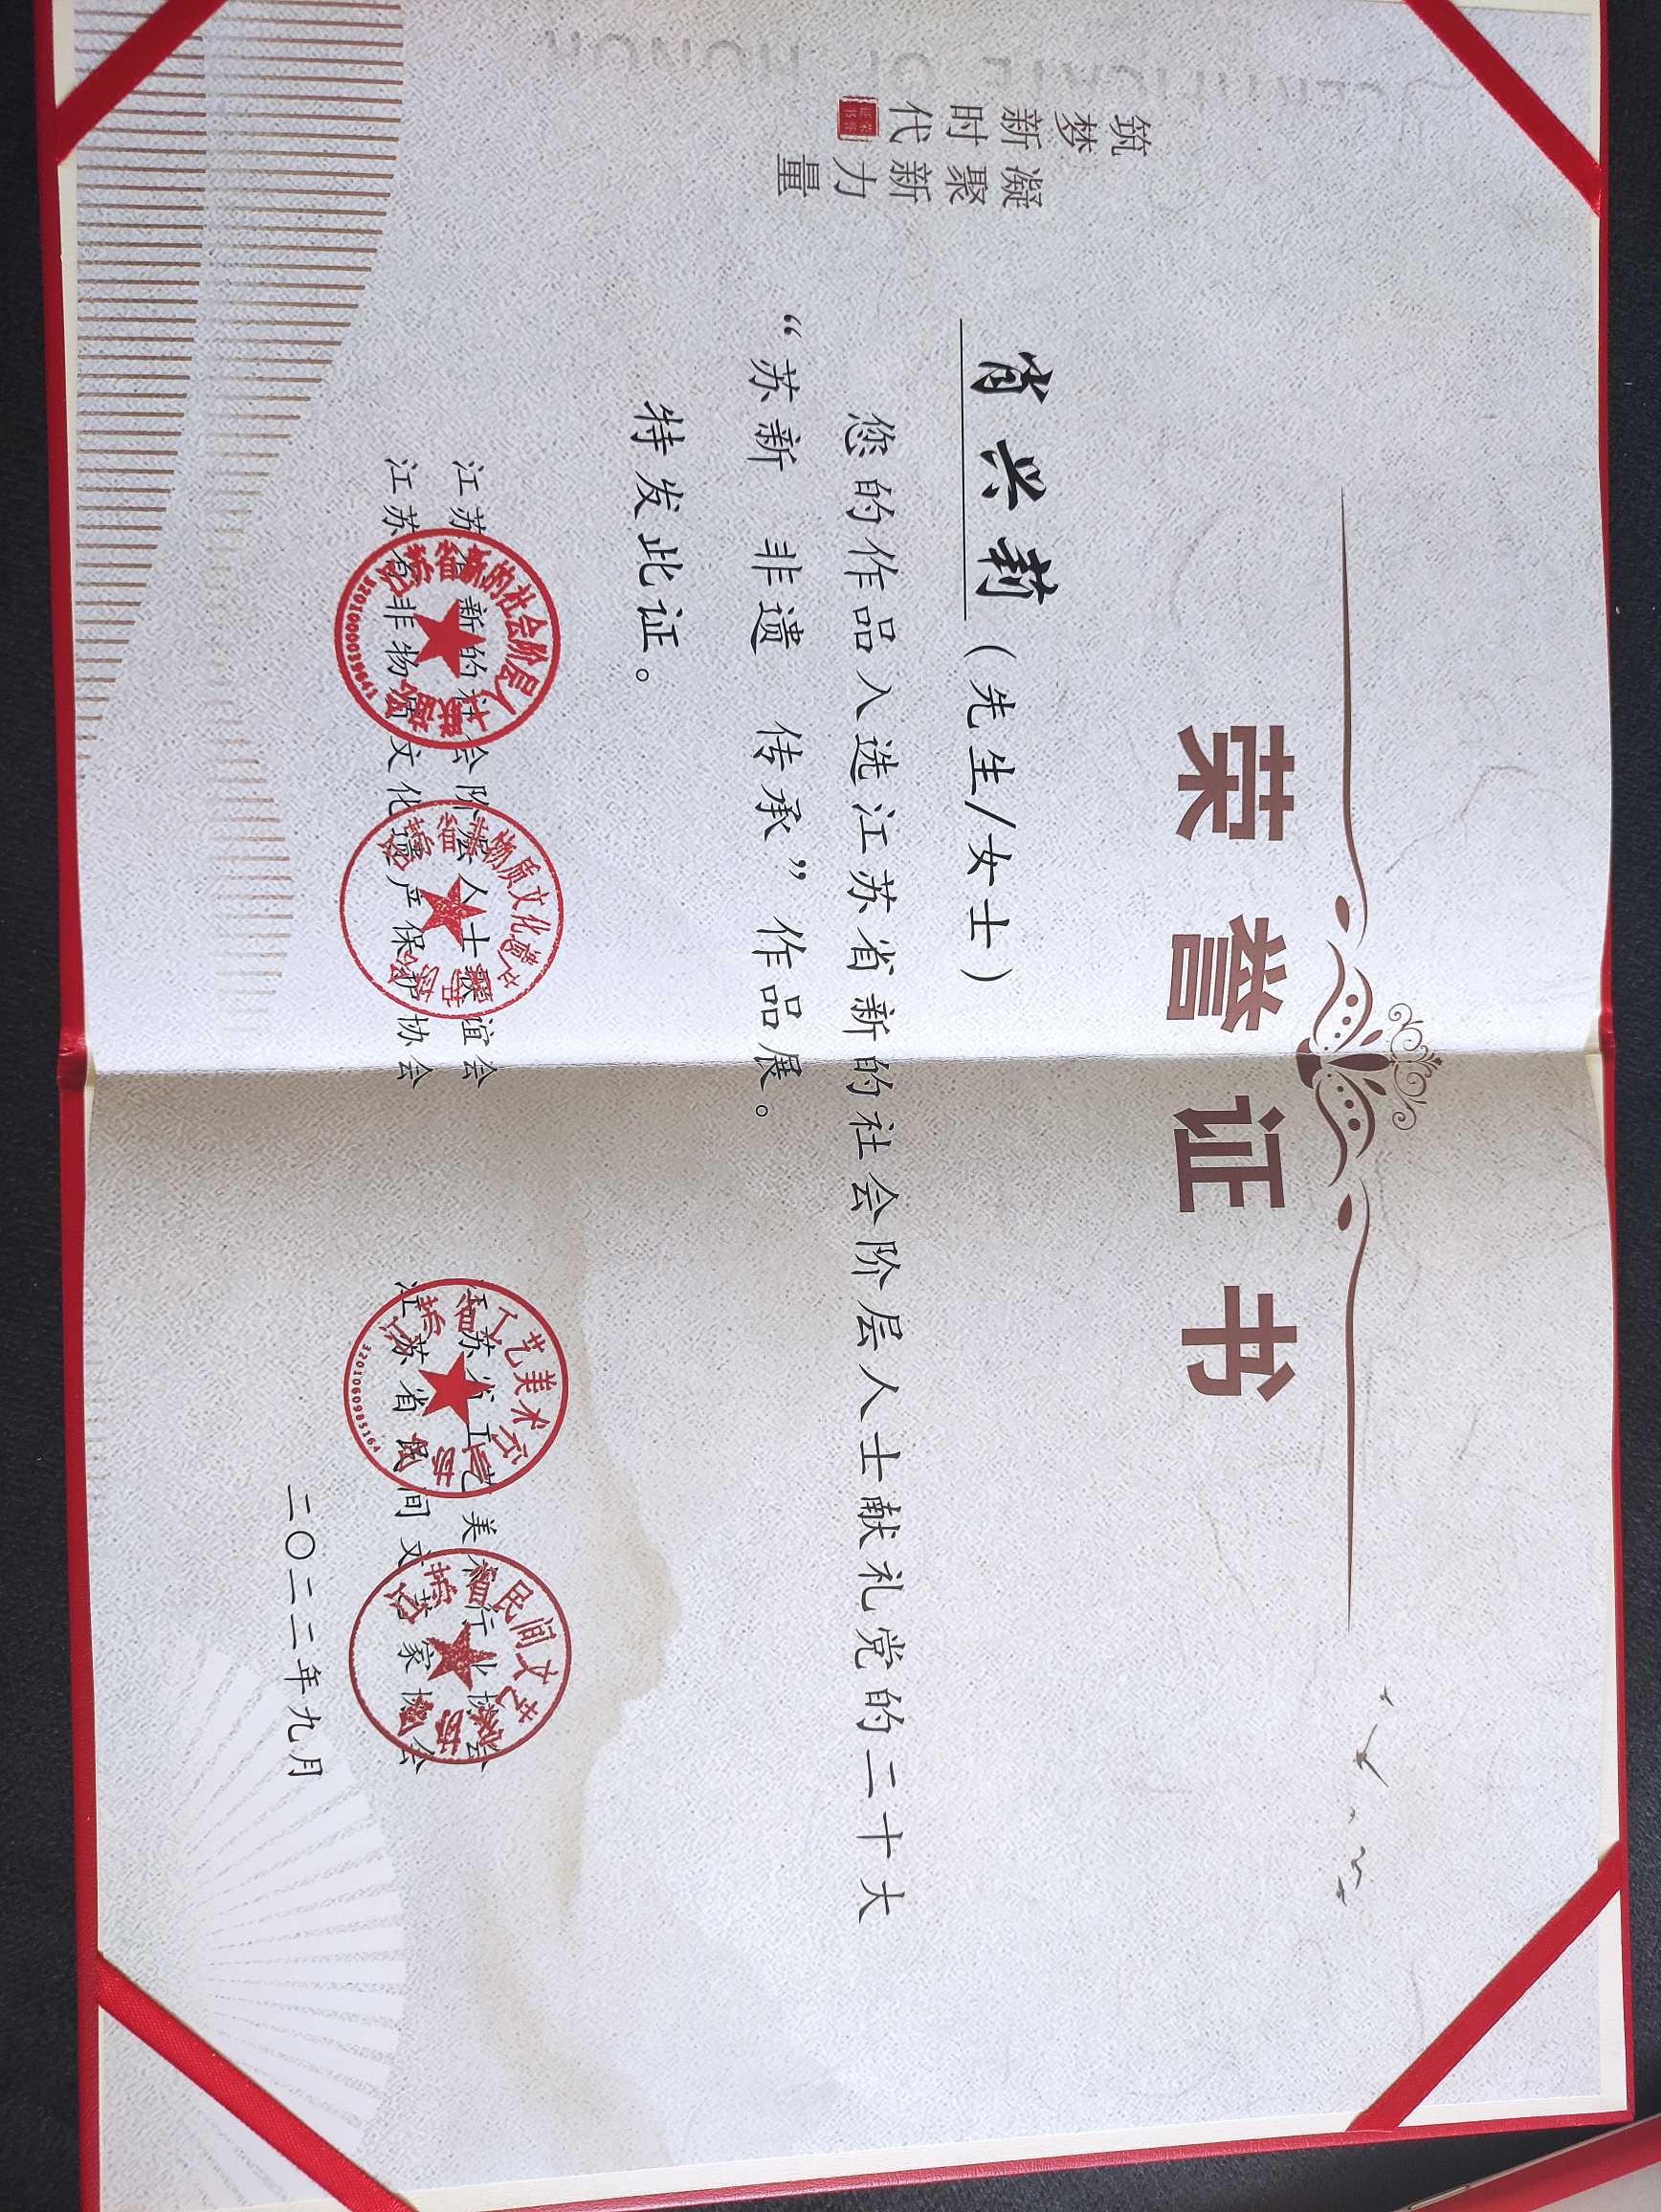 CERTIFICATE OF HONOR
筑梦新时代
凝聚新力量
荣誉证书
肖兴莉（先生/女士）
您的作品入选江苏省新的社会阶层人士献礼党的二十大
“苏新 非遗 传承”作品展。
特发此证。
江苏省新的社会阶层人士联谊会
江苏省非物质文化遗产保护协会
江苏省工艺美术行业协会
江苏省民间文艺家协会
二〇二二年九月
3201000039641
3201060985164